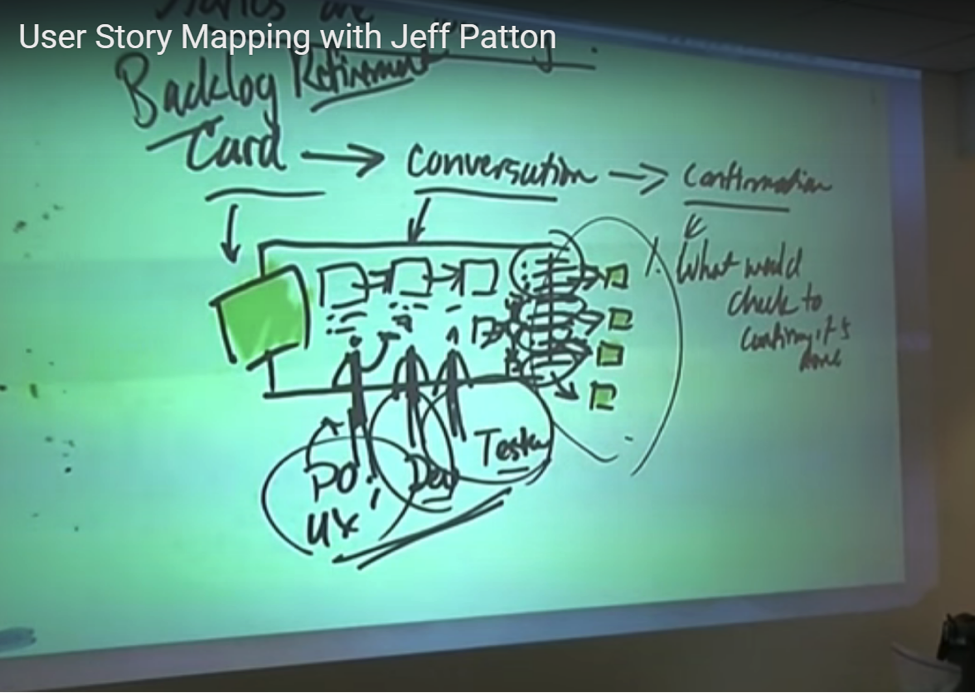 Stories are
User Story Mapping with Jeff Patton
Backlog Refinement
Card → Conversation → Confirmation
1. What would
check to
confirm it's
done
PO
UX
Dev
Tester